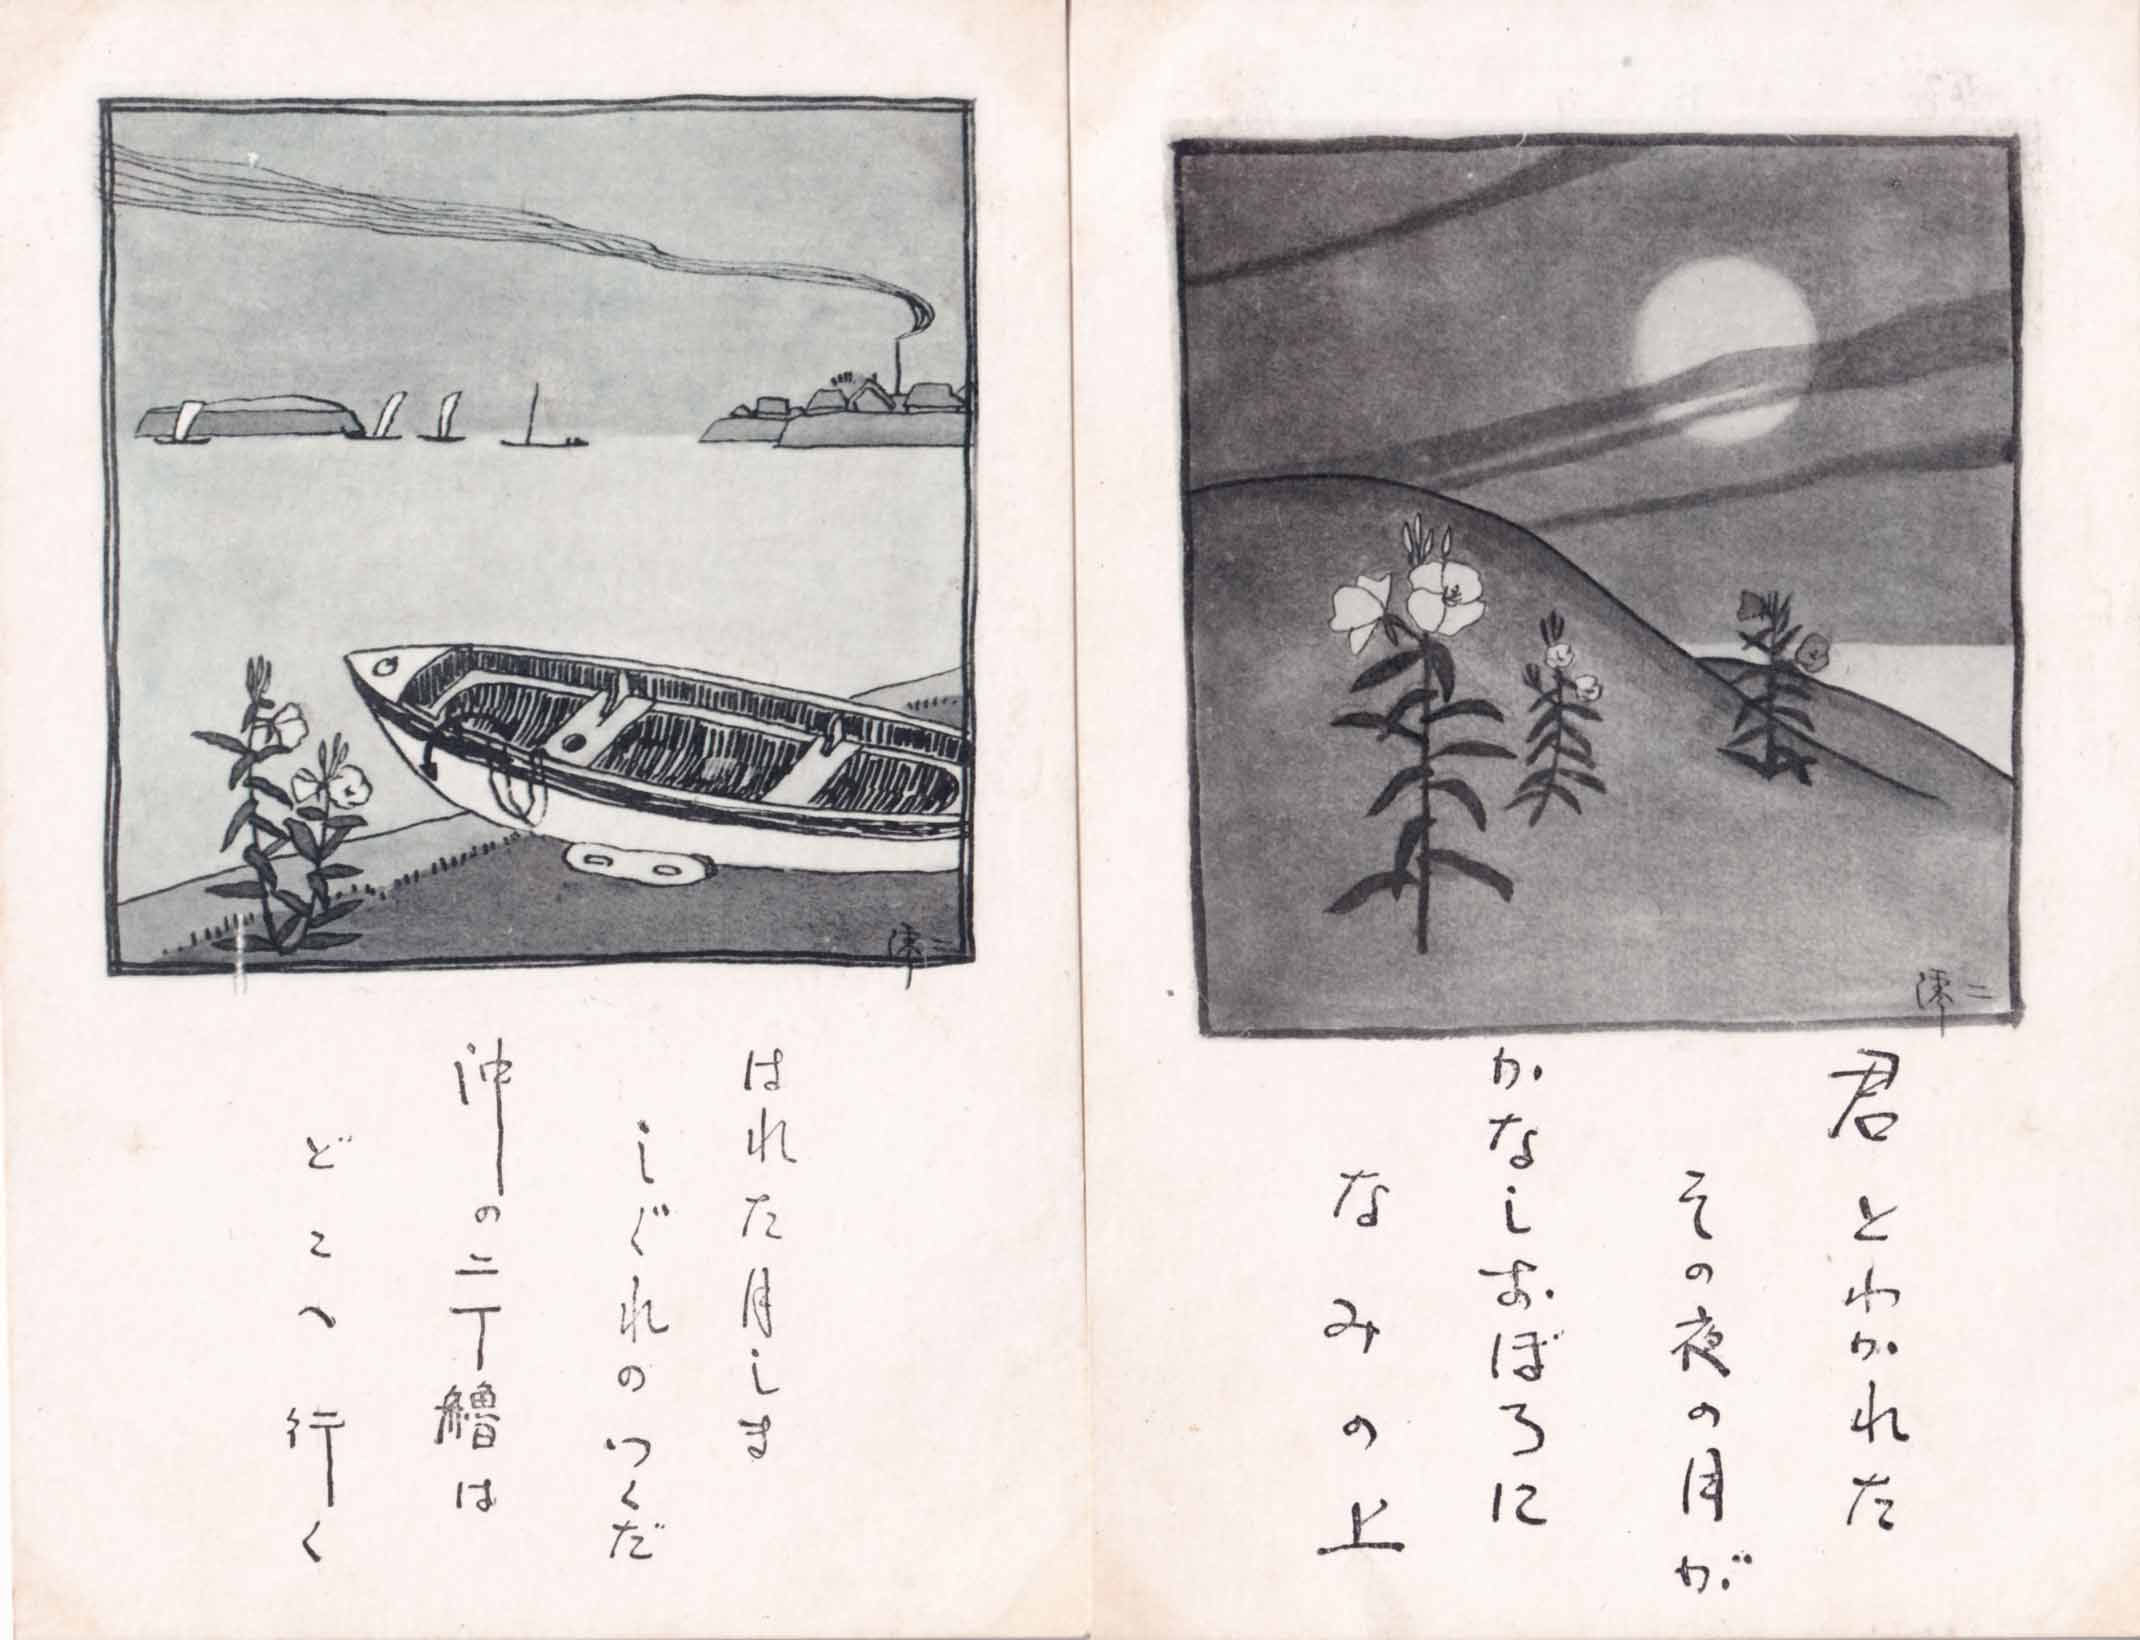 君とわかれた
その夜の月が
かなしおぼろに
なみの上
はれた月しま
しぐれのつくだ
沖の二丁艪は
どこへ行く